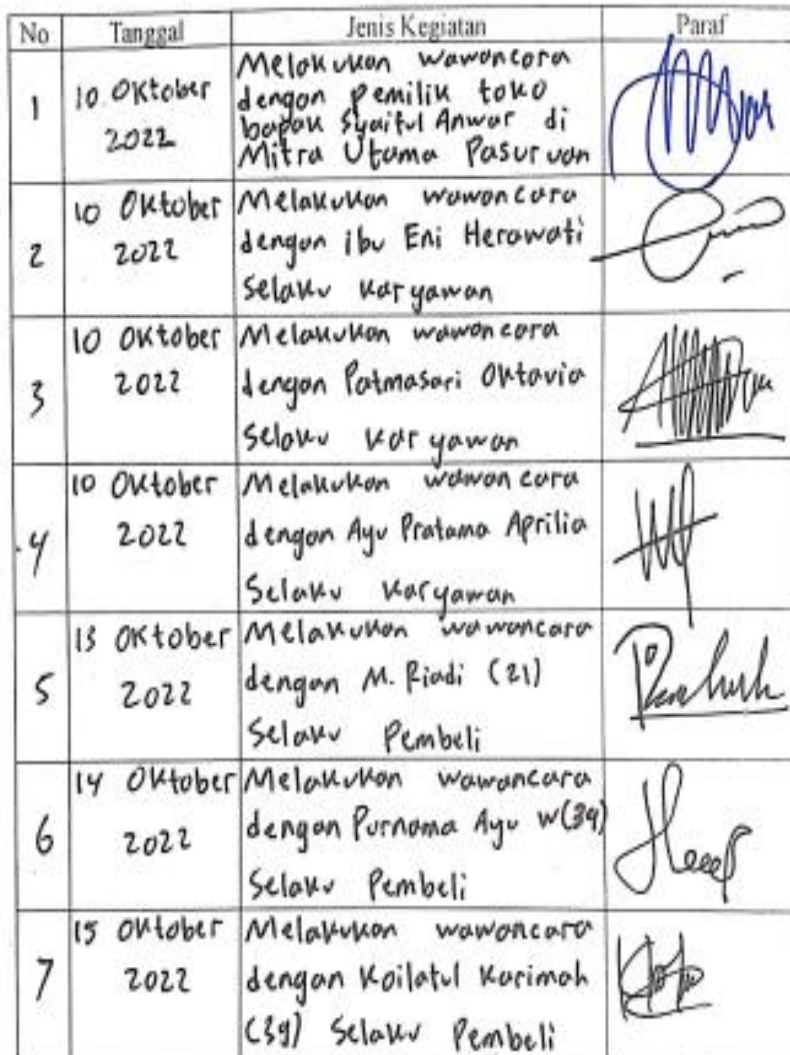 No Tanggal Jenis Kegiatan Paraf
1
10 Oktober
2022
Melakukan wawancara
dengan pemilik toko
bapak Syaiful Anwar di
Mitra Utama Pasuruan
2
10 Oktober
2022
Melakukan wawancara
dengan ibu Eni Herawati
Selaku Karyawan
3
10 Oktober
2022
Melakukan wawancara
dengan Patmasari Oktavia
Selaku Karyawan
4
10 Oktober
2022
Melakukan wawancara
dengan Ayu Pratama Aprilia
Selaku Karyawan
5
13 Oktober
2022
Melakukan wawancara
dengan M. Riadi (21)
Selaku Pembeli
6
14 Oktober
2022
Melakukan wawancara
dengan Purnama Ayu W
Selaku Pembeli
7
15 Oktober
2022
Melakukan wawancara
dengan Koilatul Karimah
(39) Selaku Pembeli